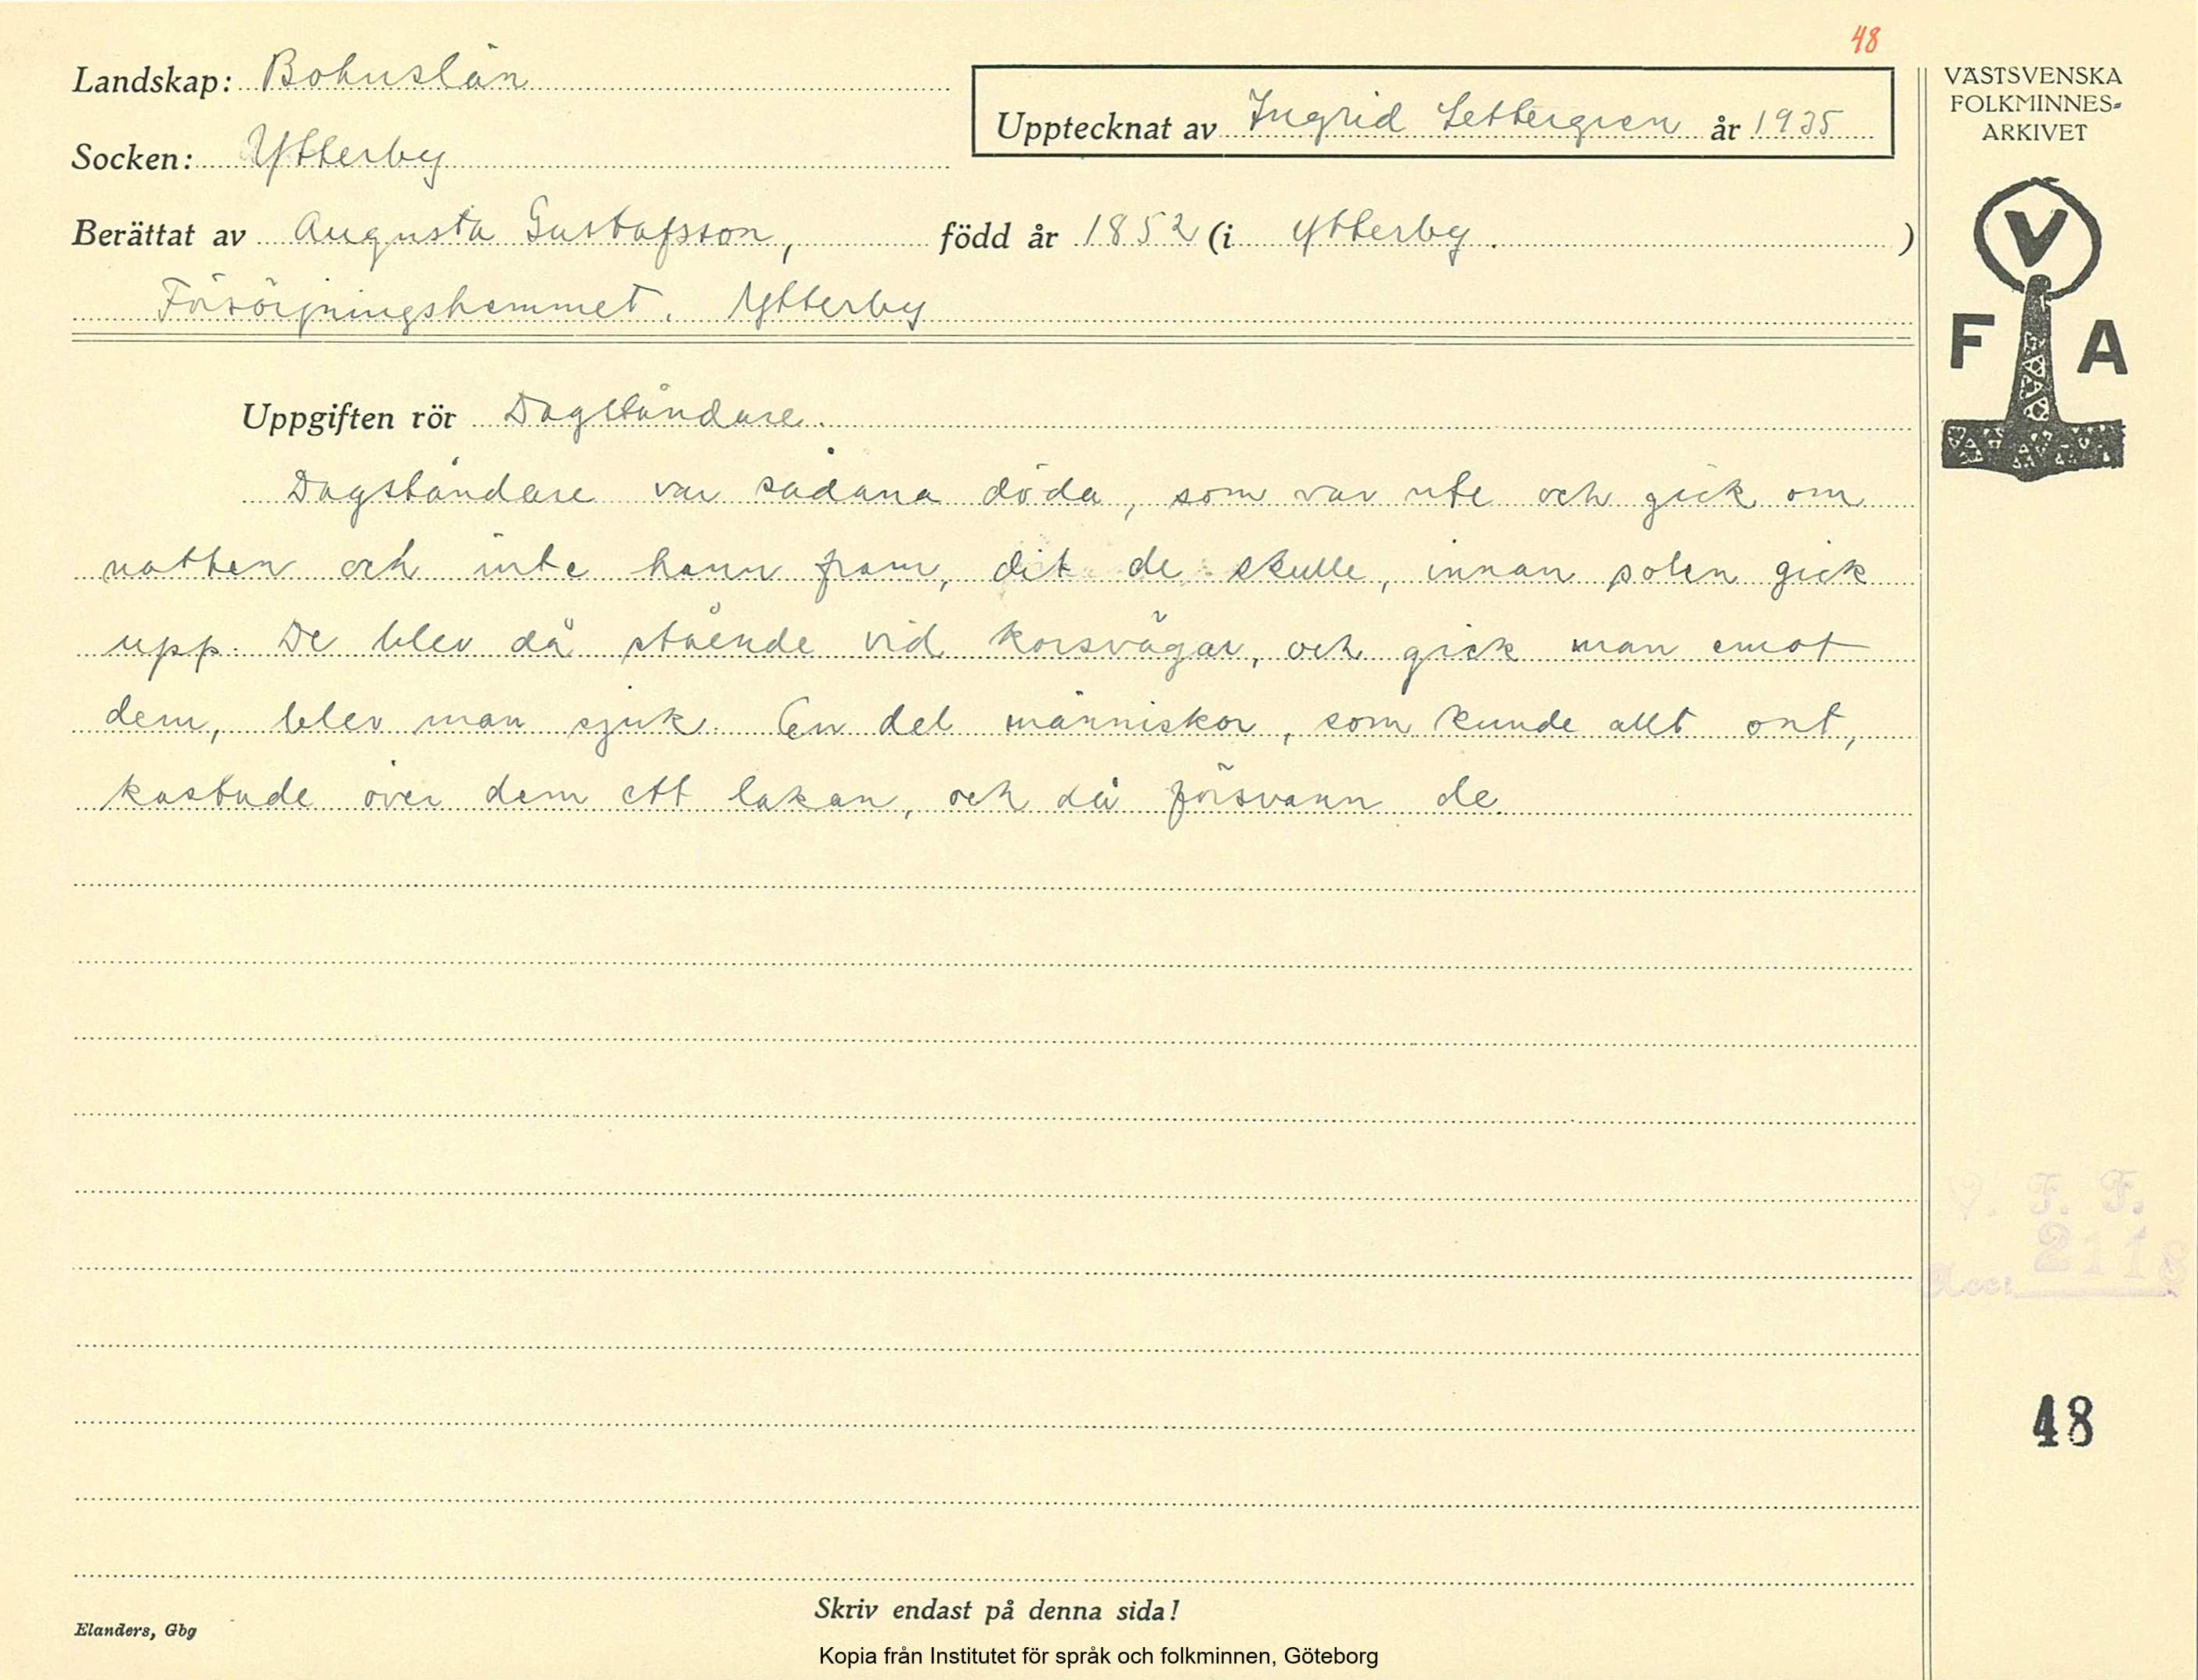 48
Landskap: Bohuslän
Upptecknat av Ingrid Settergren år 1935
Socken: Ytterby
Berättat av Augusta Gustafsson, född år 1852 (i Ytterby. )
Försörjningshemmet. Ytterby
VÄSTSVENSKA
FOLKMINNES-
ARKIVET
V
F A
Uppgiften rör Dagståndare.
Dagståndare var sådana döda, som var ute och gick om
natten och inte hann fram, dit de skulle, innan solen gick
upp. De blev då stående vid korsvägar, och gick man emot
dem, blev man sjuk. En del människor, som kunde allt ont,
kastade över dem ett lakan, och då försvann de.
V. F. F.
Acc. 2118
48
Skriv endast på denna sida!
Elanders, Gbg
Kopia från Institutet för språk och folkminnen, Göteborg